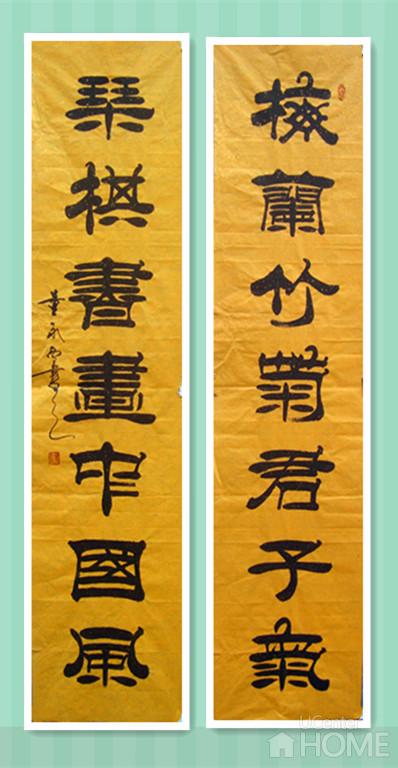 梅蘭竹菊君子氣
琴棋書畫中國風
UCenter
HOME